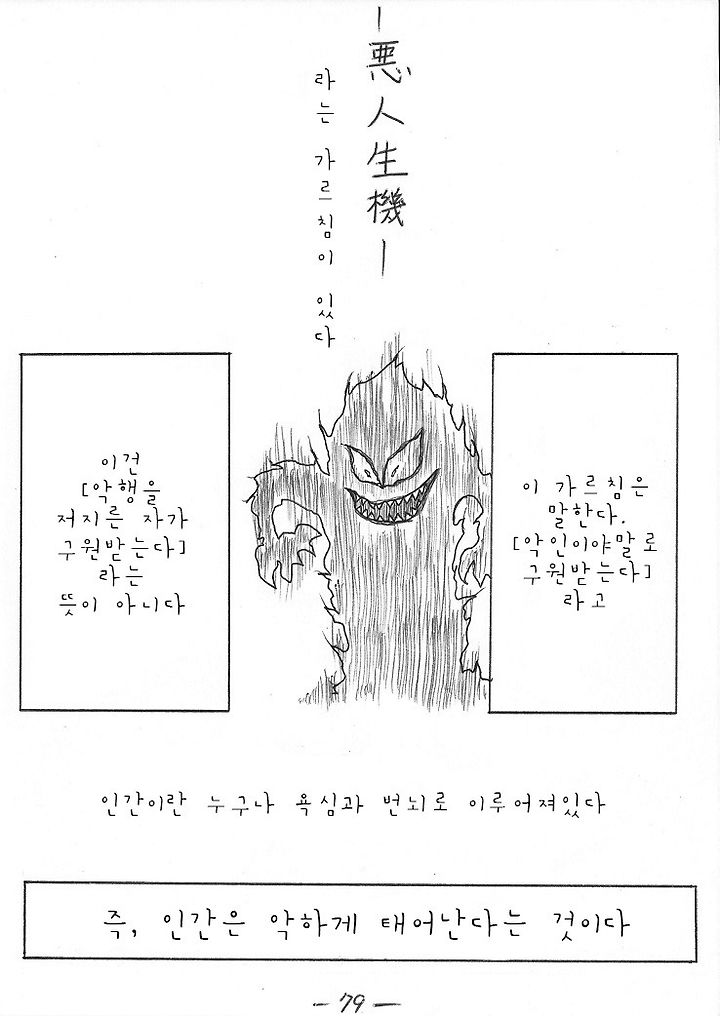 -悪人生機-
라는 가르침이 있다
이 가르침은
말한다.
[악인이야말로
구원받는다]
라고
이건
[악행을
저지른 자가
구원받는다]
라는
뜻이 아니다
인간이란 누구나 욕심과 번뇌로 이루어져있다
즉, 인간은 악하게 태어난다는 것이다
- 79 -